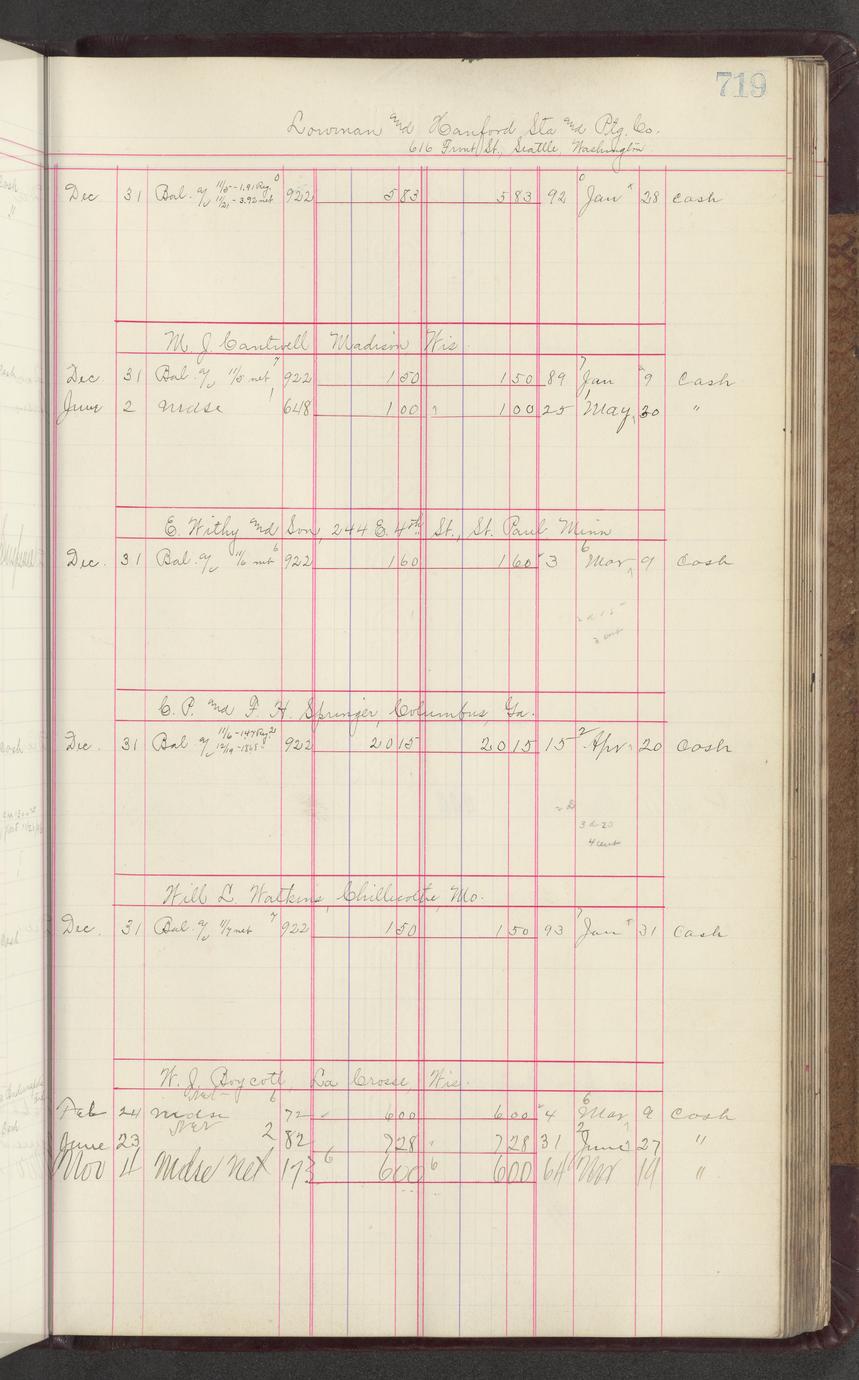 719
Lowman and Hanford Sta and Ptg. Co.
616 Front St., Seattle, Washington
Dec 31 Bal. a/c 11/5 - 1.91 Reg. 11/21 - 3.92 net 922 5 83 5 83 92 Jan 28 Cash
M. J. Cantwell Madison Wis.
Dec 31 Bal a/c 11/5 net 7 922 1 50 1 50 89 7 Jan 9 Cash
June 2 mdse 1 648 1 00 1 00 25 1 May 30 "
E. Withy and Son, 244 E. 4th St., St. Paul Minn
Dec. 31 Bal. a/c 11/6 net 6 922 1 60 1 60 3 6 Mar 9 Cash
C. P. and F. H. Springer, Columbus, Ga.
Dec. 31 Bal a/c 11/6 - 147 Reg. 12/19 - 1868 922 20 15 20 15 15 2 Apr 20 Cash
3 d 20
4 cent
Will L. Watkins, Chillicothe, Mo.
Dec. 31 Bal. a/c 11/7 net 7 922 1 50 1 50 93 7 Jan 31 Cash
W. J. Boycott, La Crosse, Wis.
Net 6
Feb 24 mdse 72 6 00 6 00 4 6 Mar 9 Cash
Net
June 23 2 82 7 28 7 28 31 2 June 27 "
Nov 4 Mdse Net 173 6 6 00 6 6 00 64 Nov 19 "